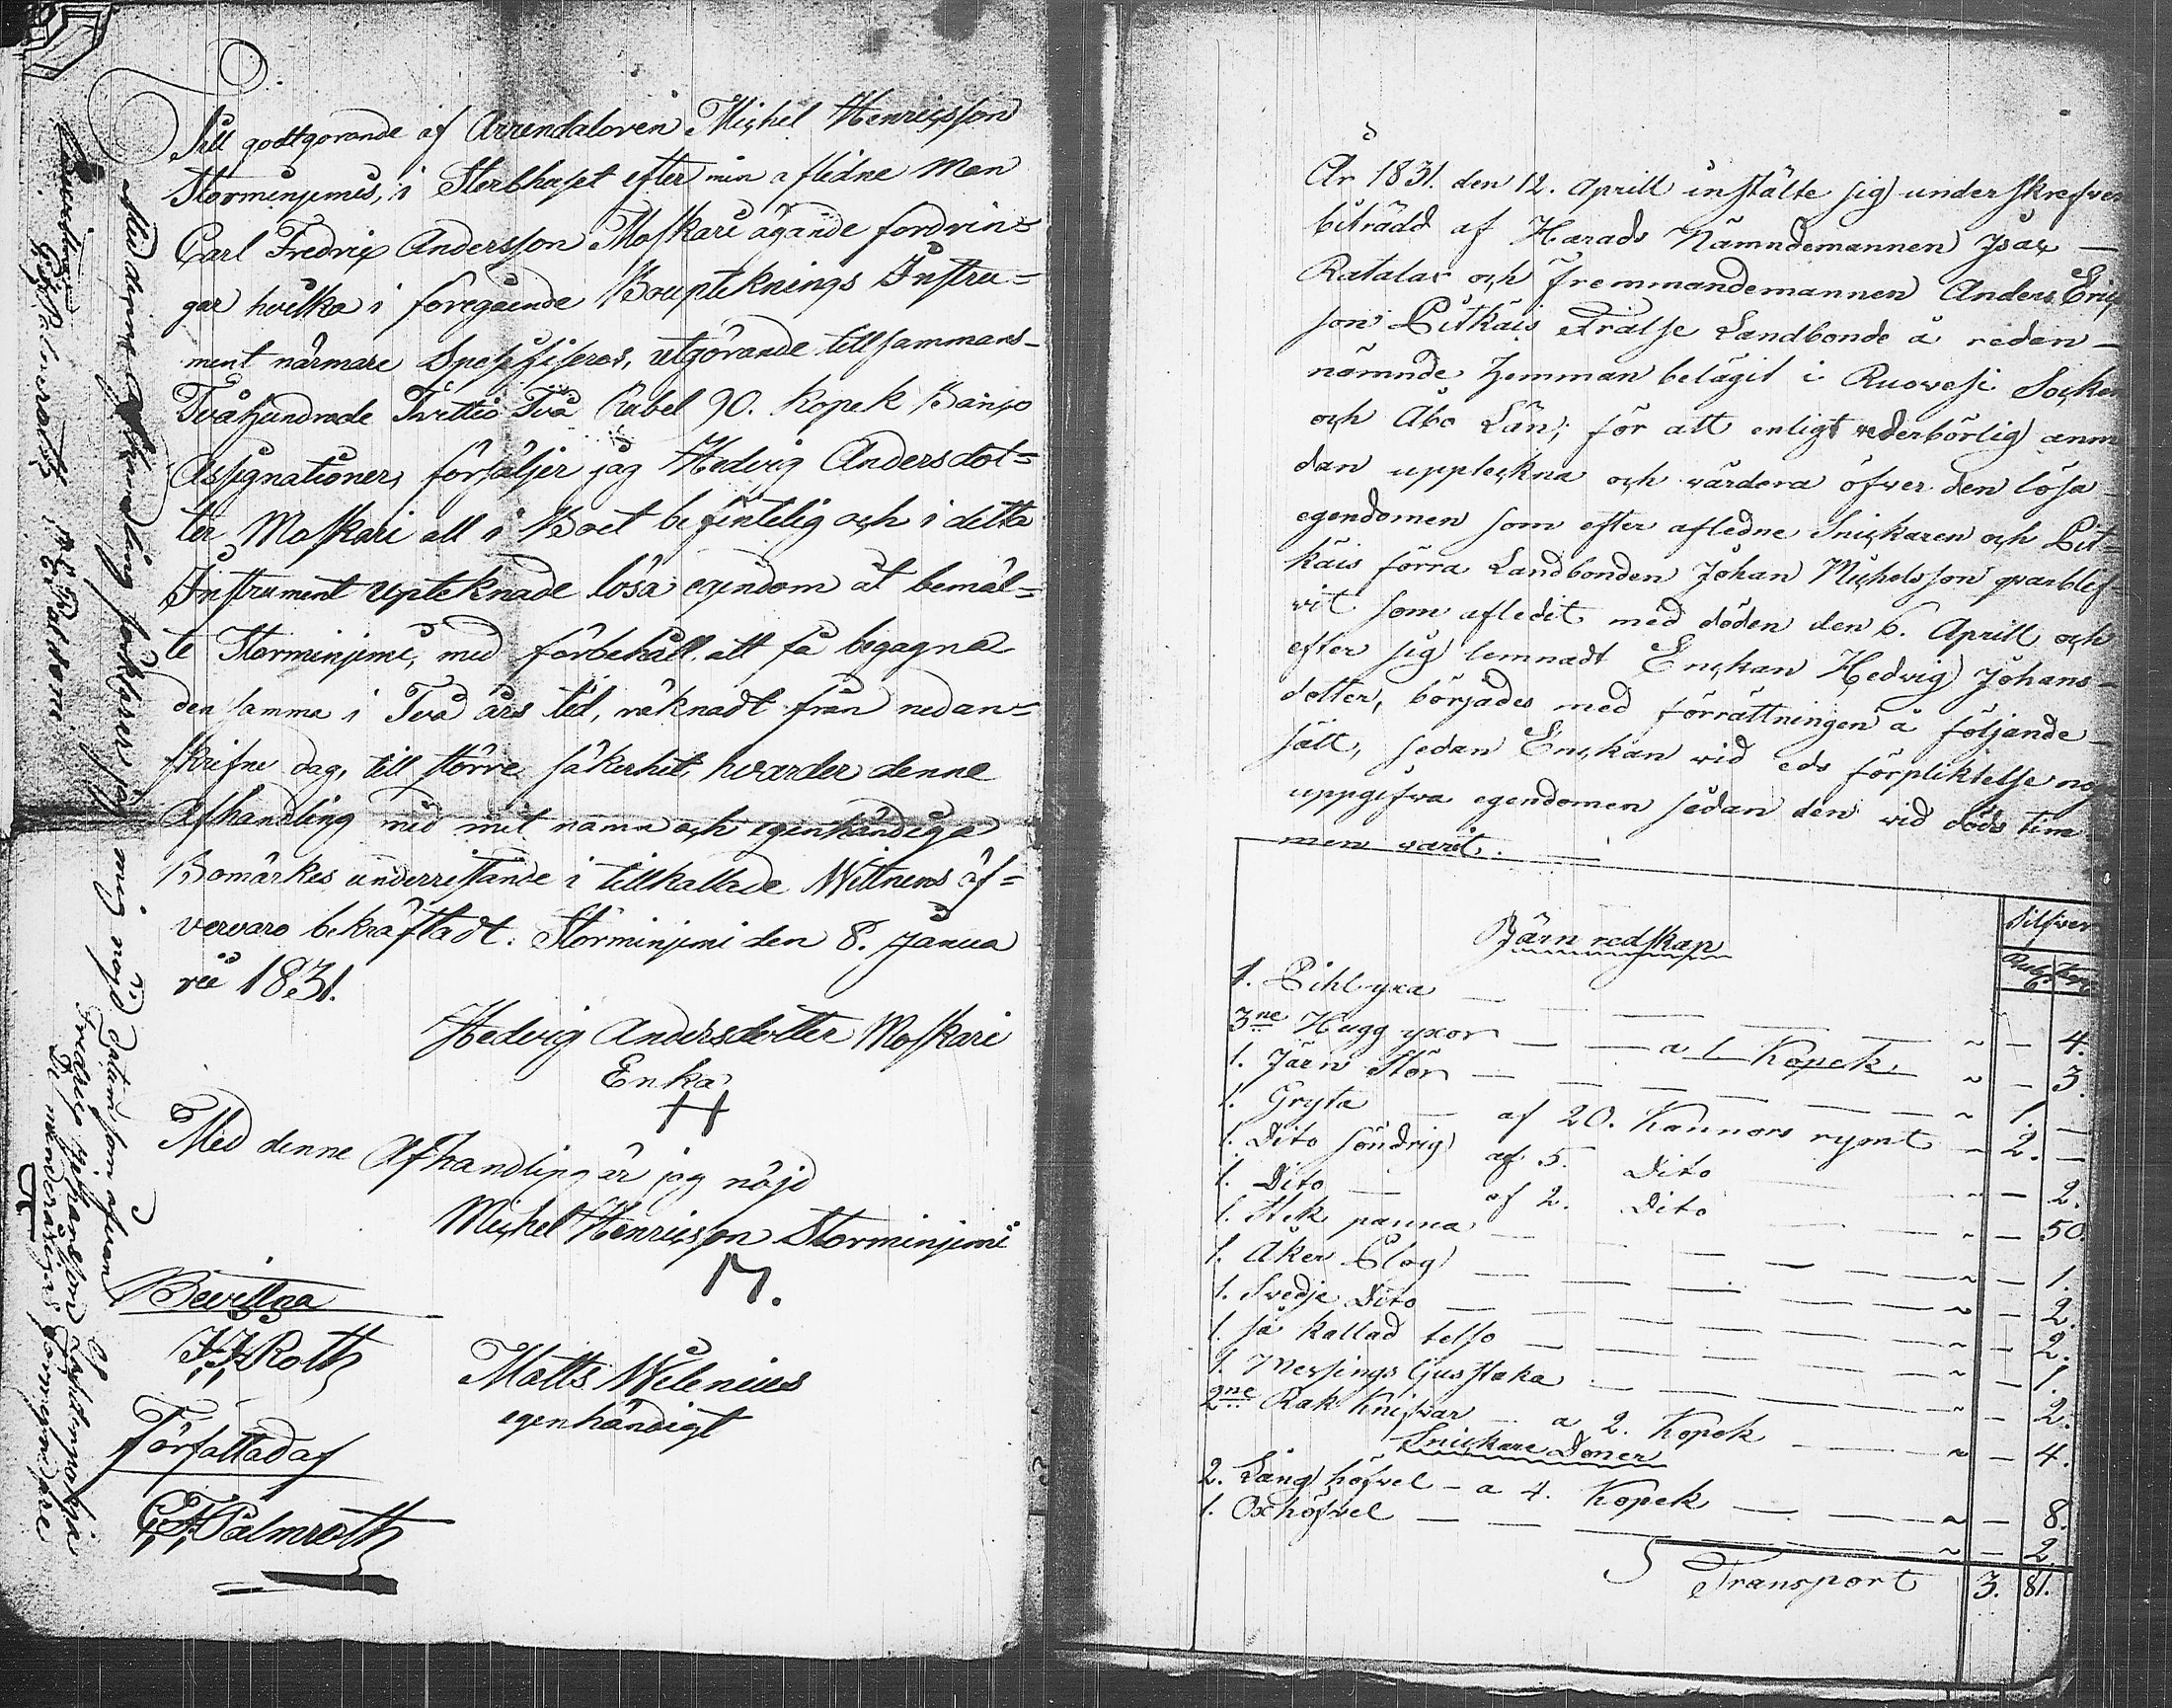 Till godtgörande af Arrendatoren Michel Henricsson
Storminjemis, i Sterbhuset efter min aflidne Man
Carl Fredric Andersson Moskari ägande fordrin=
gar hvilka i föregående Boupteknings Instru=
ment närmare Spessifiseras, utgörande tillsammans
Tvåhundrade Trettio Två Rubel 90. Kopek Banco
Assignationer, försäljer jag Hedvig Andersdot=
ter Moskari all i Boet befintelig och i detta
Instrument upteknade lösa egendom åt bemäl=
te Storminjemi, med förbehåll att få begagna
den samma i Två års tid, räknadt från nedan=
skrifne dag, till större säkerhet, hvarder denne
Afhandling med mit namn och egenhändiga
Bomärkes underristande i tillkallade Wittnens öf=
vervaro bekräftadt. Storminjemi den 8. Janua
rii 1831.
Hedvig Andersdotter Moskari
Enka
H
Med denne Afhandling är jag nöjd
Michel Henricsson Storminjemi
M.
Bevittna
J. J. Roth
Matts Wilenius
egenhändigt
Författad af
G. F. Palmroth
Med denne Afhandling förklarer jag mig nöjd Datum som ofvan
Bevittna
År 1831. den 12. Aprill instälte sig underskrefven
biträdd af Härads Nämndemannen Isac —
Ratalas och Fremmandemannen Anders Eric
son Pitkäis Frälse Landbonde å reden —
nämnde Hemman belägit i Ruovesi Socken
och Åbo Län; för att enligt vederbörlig anm
dan uppteckna och värdera öfver den lösa
egendomen som efter afledne Snickaren och Pit=
käis förra Landbonden Johan Michelsson qvarblef=
vit som afledit med döden den 6. Aprill och
efter sig lemnadt Enckan Hedvig Johans=
dotter, börjades med förrättningen å följande
sätt, sedan Enckan vid eds förpliktelse nog
uppgifva egendomen sådan den vid döds tim
men varit.
Silfver
Järn redskap
1. Pihlyxa — 4.
3ne Hugg yxor — a 1 Kopek 3.
1. Järn Stör — 1. —
1. Gryta — af 20. Kannors rymt 2. —
1. Dito söndrig af 5. Dito — 2.
1. Dito — af 2. Dito — 50.
1. Stek panna — 1.
1. Åker Plog — 2.
1. Svedje Dito — 2.
1. så kallad telso — 1.
1. Messings Ljusstaka — 2.
2ne Rak Knifvar — a 2. Kopek — 4.
Snickare Doner
2. Lång höfvel — a 4. Kopek — 8.
1. Oxhöfvel — 2
Transport 3. 81.